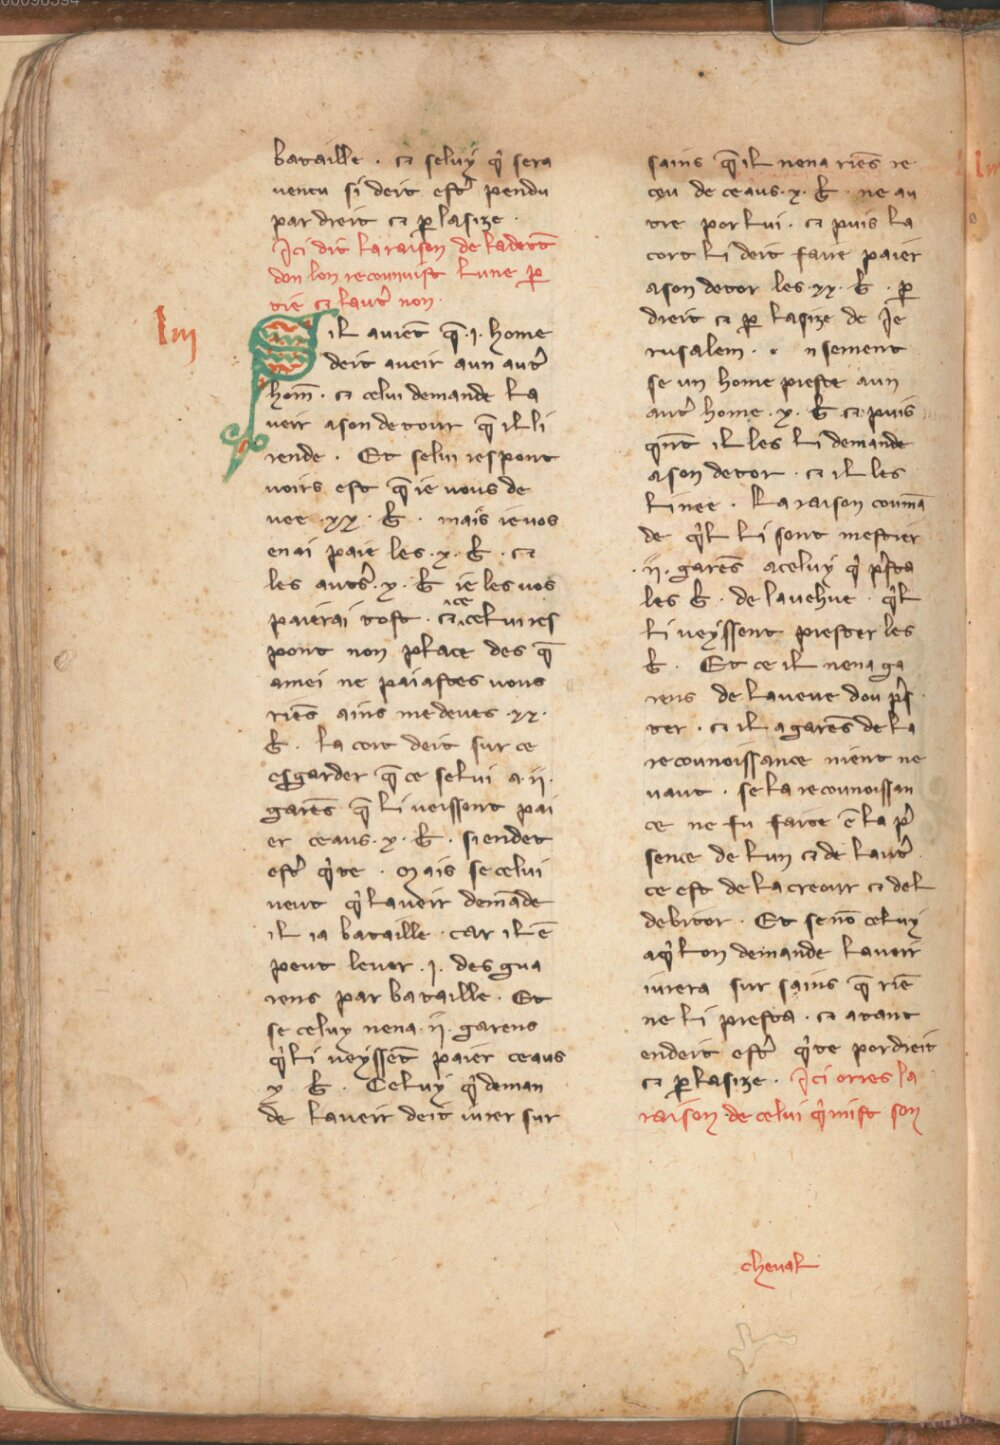 bataille . ⁊ seluy q̇ sera
uencu si deit estr̉ pendu
par dreit ⁊ ꝑ lasize .
Ici dit la raison de la dett̄
don lon reconnuist lune ꝑ
tie ⁊ lautr̉ non .
S il auient q̄ .i. home
deit aueir a un autr̉
hom̄ . ⁊ celui demande la
ueir a son detour q̄ il li
rende . Et selui respont
uoirs est q̄ ie uous de
uee .xx. ƀ . mais ie uos
en ai paie les .x. ƀ . ⁊
les autr̉s .x. ƀ ie les uos
paierai tost . ⁊ ce celui res
pont non place des q̄
a mei ne paiastes uous
riēs ains me deues .xx.
ƀ . la cort deit sur ce
esgarder q̄ ce selui a .ii.
garēs q̄ li ueissent pai
er ceaus .x. ƀ . si en det
estr̉ q̇te . Mais se celui
ueut q̇ laueir demāde
il i a bataille . car il ē
peut leuer .i. des gua
rens par bataille . Et
se celuy nen a .ii. garens
q̇ li ueyssēt paier ceaus
x . ƀ . Celuy q̇ deman
de laueir deit iurer sur
sains q̄ il nen a riēs re
ceu de ceaus .x. ƀ . ne au
tre por lui . ⁊ puis la
cort li deit faire paier
a son detor les .xx. ƀ . ꝑ
dreit ⁊ ꝑ lasize de Ie
rusalem . nsement
se un home preste a un
autr̉ home .x. ƀ ⁊ puis
q̇nt il les li demande
a son detor . ⁊ il les
li nee . La raison coumā
de q̇l li sont mestier
.ii. garēs a celuy q̇ p̉sta
les ƀ . de la uehue . q̇l
li ueyssent prester les
ƀ . Et ce il nen a ga
rens de la ueue dou p̉s
ter . ⁊ il a garēs de la
reconnoissance nient ne
uaut . se la reconnoissan
ce ne fu faite ē la p̉
sence de lun ⁊ de lautr̉ .
ce est de la creour ⁊ del
debitor . Et se nō celuy
a q̇ lon demande lauoir
iurera sur sains q̄ riē
ne li presta . ⁊ atant
en deit estr̉ q̇te por dreit
⁊ ꝑ lasize . Ici orres la
raison de celui q̇ mist son
cheual